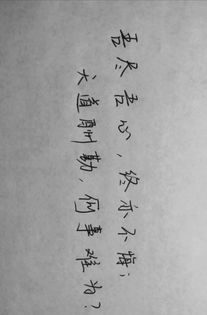 吾尽吾心，终亦不悔；
大道酬勤，何事难为？